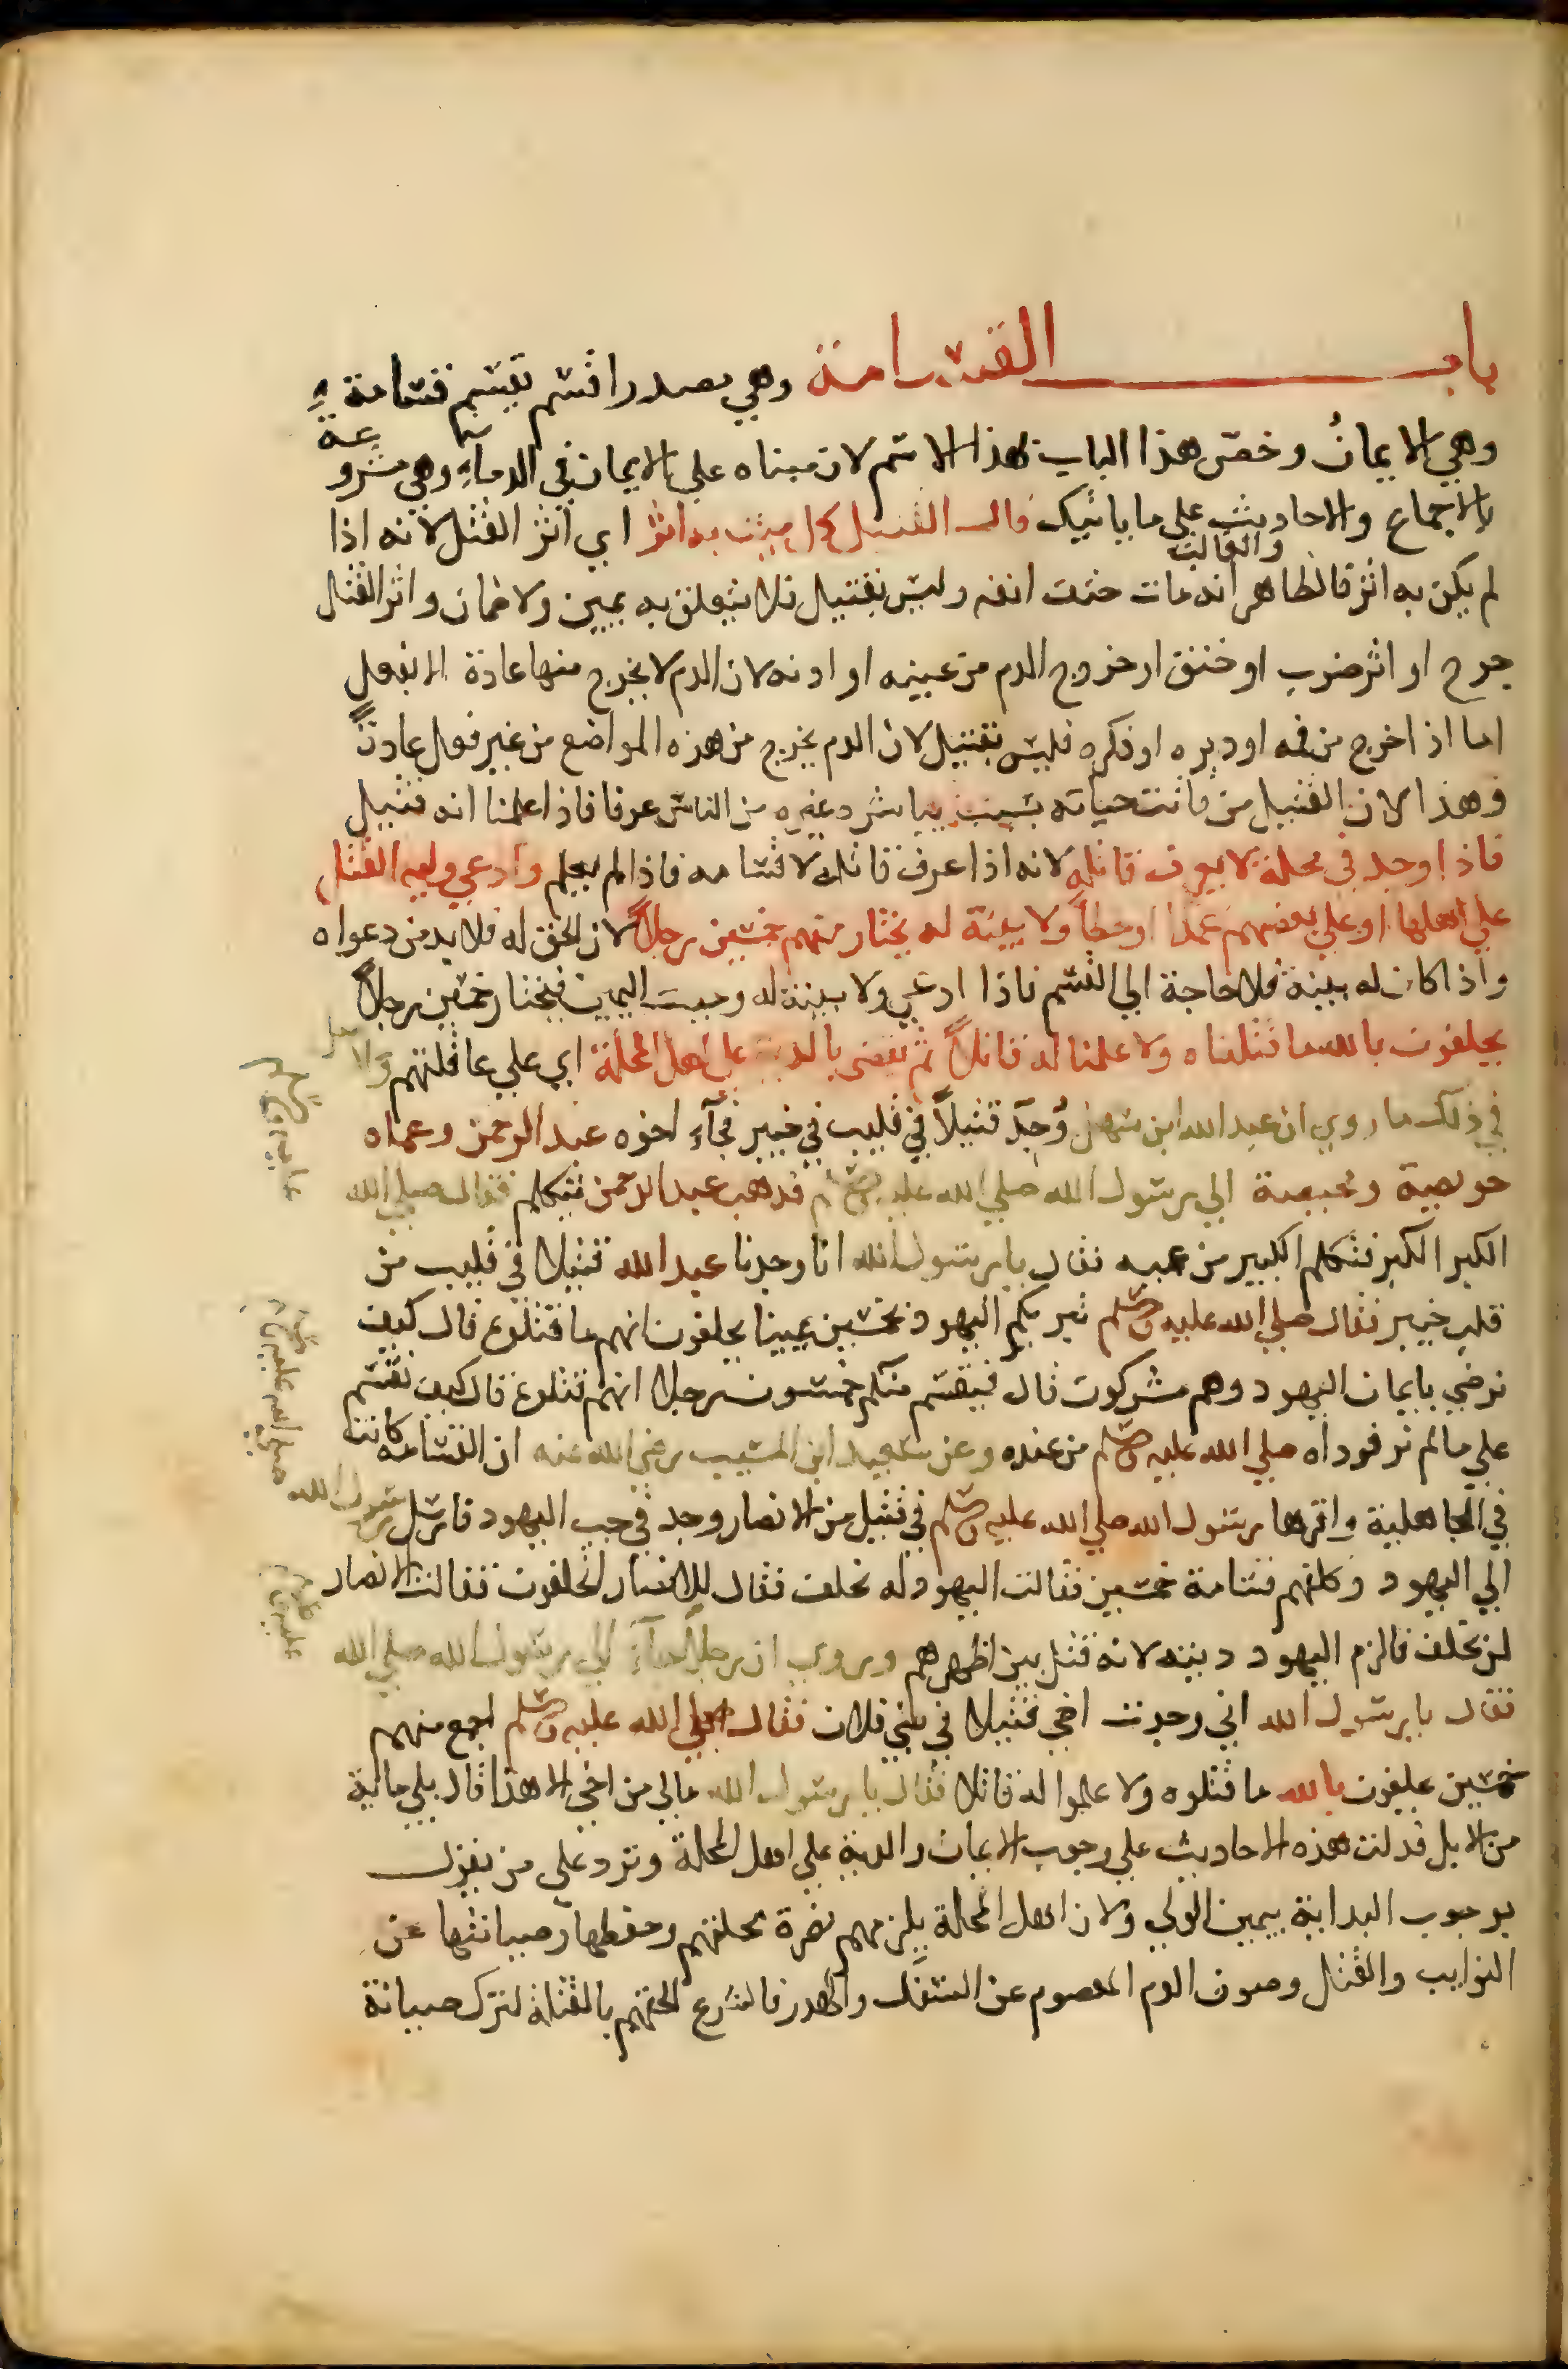 باب القسامة وهي مصدر اقسم يقسم قسامة
وهي الايمان وخص هذا الباب بهذا الاسم لان مبناه على الايمان في الدماء وهي مشروعة
بالاجماع والاحاديث على ما ياتيك قال القتيل كل ميت به اثر اي اثر القتل لانه اذا
لم يكن به اثر فالظاهر والغالب انه مات حتف انفه وليس بقتيل فلا يتعلق به يمين ولا ضمان واثر القتل
جرح او اثر ضرب او خنق او خروج الدم من عينه او اذنه لان الدم لا يخرج منها عادة الا بفعل
اما اذا خرج من فمه او دبره او ذكره فليس بقتيل لان الدم يخرج من هذه المواضع من غير فعل عادةً
وهذا لان القتيل من فاتت حياته بسبب يباشره غيره من الناس عرفا فاذا علمنا انه قتيل
فاذا وجد في محلة لا يعرف قاتله لانه اذا عرف قاتله لا قسامة فاذا لم يعلم وادعى وليه القتل
على اهلها او على بعضهم عمدًا او خطأ ولا بينة له يختار منهم خمسين رجلاً لان الحق له فلا بد من دعواه
واذا كان له بينة فلا حاجة الى القسم فاذا ادعى ولا بينة له وجبت اليمين فيختار خمسين رجلاً
يحلفون بالله ما قتلناه ولا علمنا له قاتلاً ثم يقضى بالدية على اهل المحلة اي على عاقلتهم والاصل
في ذلك ما روي ان عبد الله ابن سهل وُجد قتيلاً في قليب في خيبر فجآء اخوه عبد الرحمن وعماه
حويصة ومحيصة الى رسول الله صلى الله عليه وسلم فذهب عبد الرحمن يتكلم فقال صلى الله
الكبر الكبر فتكلم الكبير من عميه فقال يا رسول الله انا وجدنا عبد الله قتيلا في قليب من
قلب خيبر فقال صلى الله عليه وسلم تبريكم اليهود بخمسين يمينا يحلفون انهم ما قتلوه قال كيف
نرضى بايمان اليهود وهم مشركون قال فيقسم منكم خمسون رجلا انهم قتلوه قال كيف نقسم
على ما لم نر فوداه صلى الله عليه وسلم من عنده وعن سعيد ابن المسيب رضي الله عنه ان القسامة كانت
في الجاهلية واقرها رسول الله صلى الله عليه وسلم في قتيل من الانصار وجد في جب اليهود فارسل رسول الله
الى اليهود وكلفهم قسامة خمسين فقالت اليهود له نحلف فقال للانصار اتحلفون فقالت الانصار
لن نحلف فالزم اليهود ديته لانه قتل بين اظهرهم وروي ان رجلاً جآء الى رسول الله صلى الله
فقال يا رسول الله اني وجدت اخي قتيلا في بني فلان فقال صلى الله عليه وسلم اجمع منهم
خمسين يحلفون بالله ما قتلوه ولا علموا له قاتلا فقال يا رسول الله ما لي من اخي الا هذا قال بلى ماية
من الابل فدلت هذه الاحاديث على وجوب الايمان والدية على اهل المحلة وترد على من يقول
بوجوب البداية بيمين الولي ولان اهل المحلة يلزمهم نصرة محلتهم وحفظها وصيانتها عن
النوايب والقتل وصون الدم المعصوم عن السفك والهدر فالشرع الحقهم بالقتلة لترك صيانة
عليه وسلم
صلى الله عليه وسلم
عليه وسلم